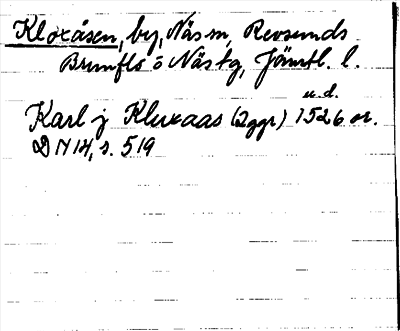 Kloxåsen, by, Näs sn, Revsunds
Brunflo o Näs tg, Jämtl. l.
u. d.
Karl j Kluxaas (2ggr) 1526 or.
DN 14, s. 519